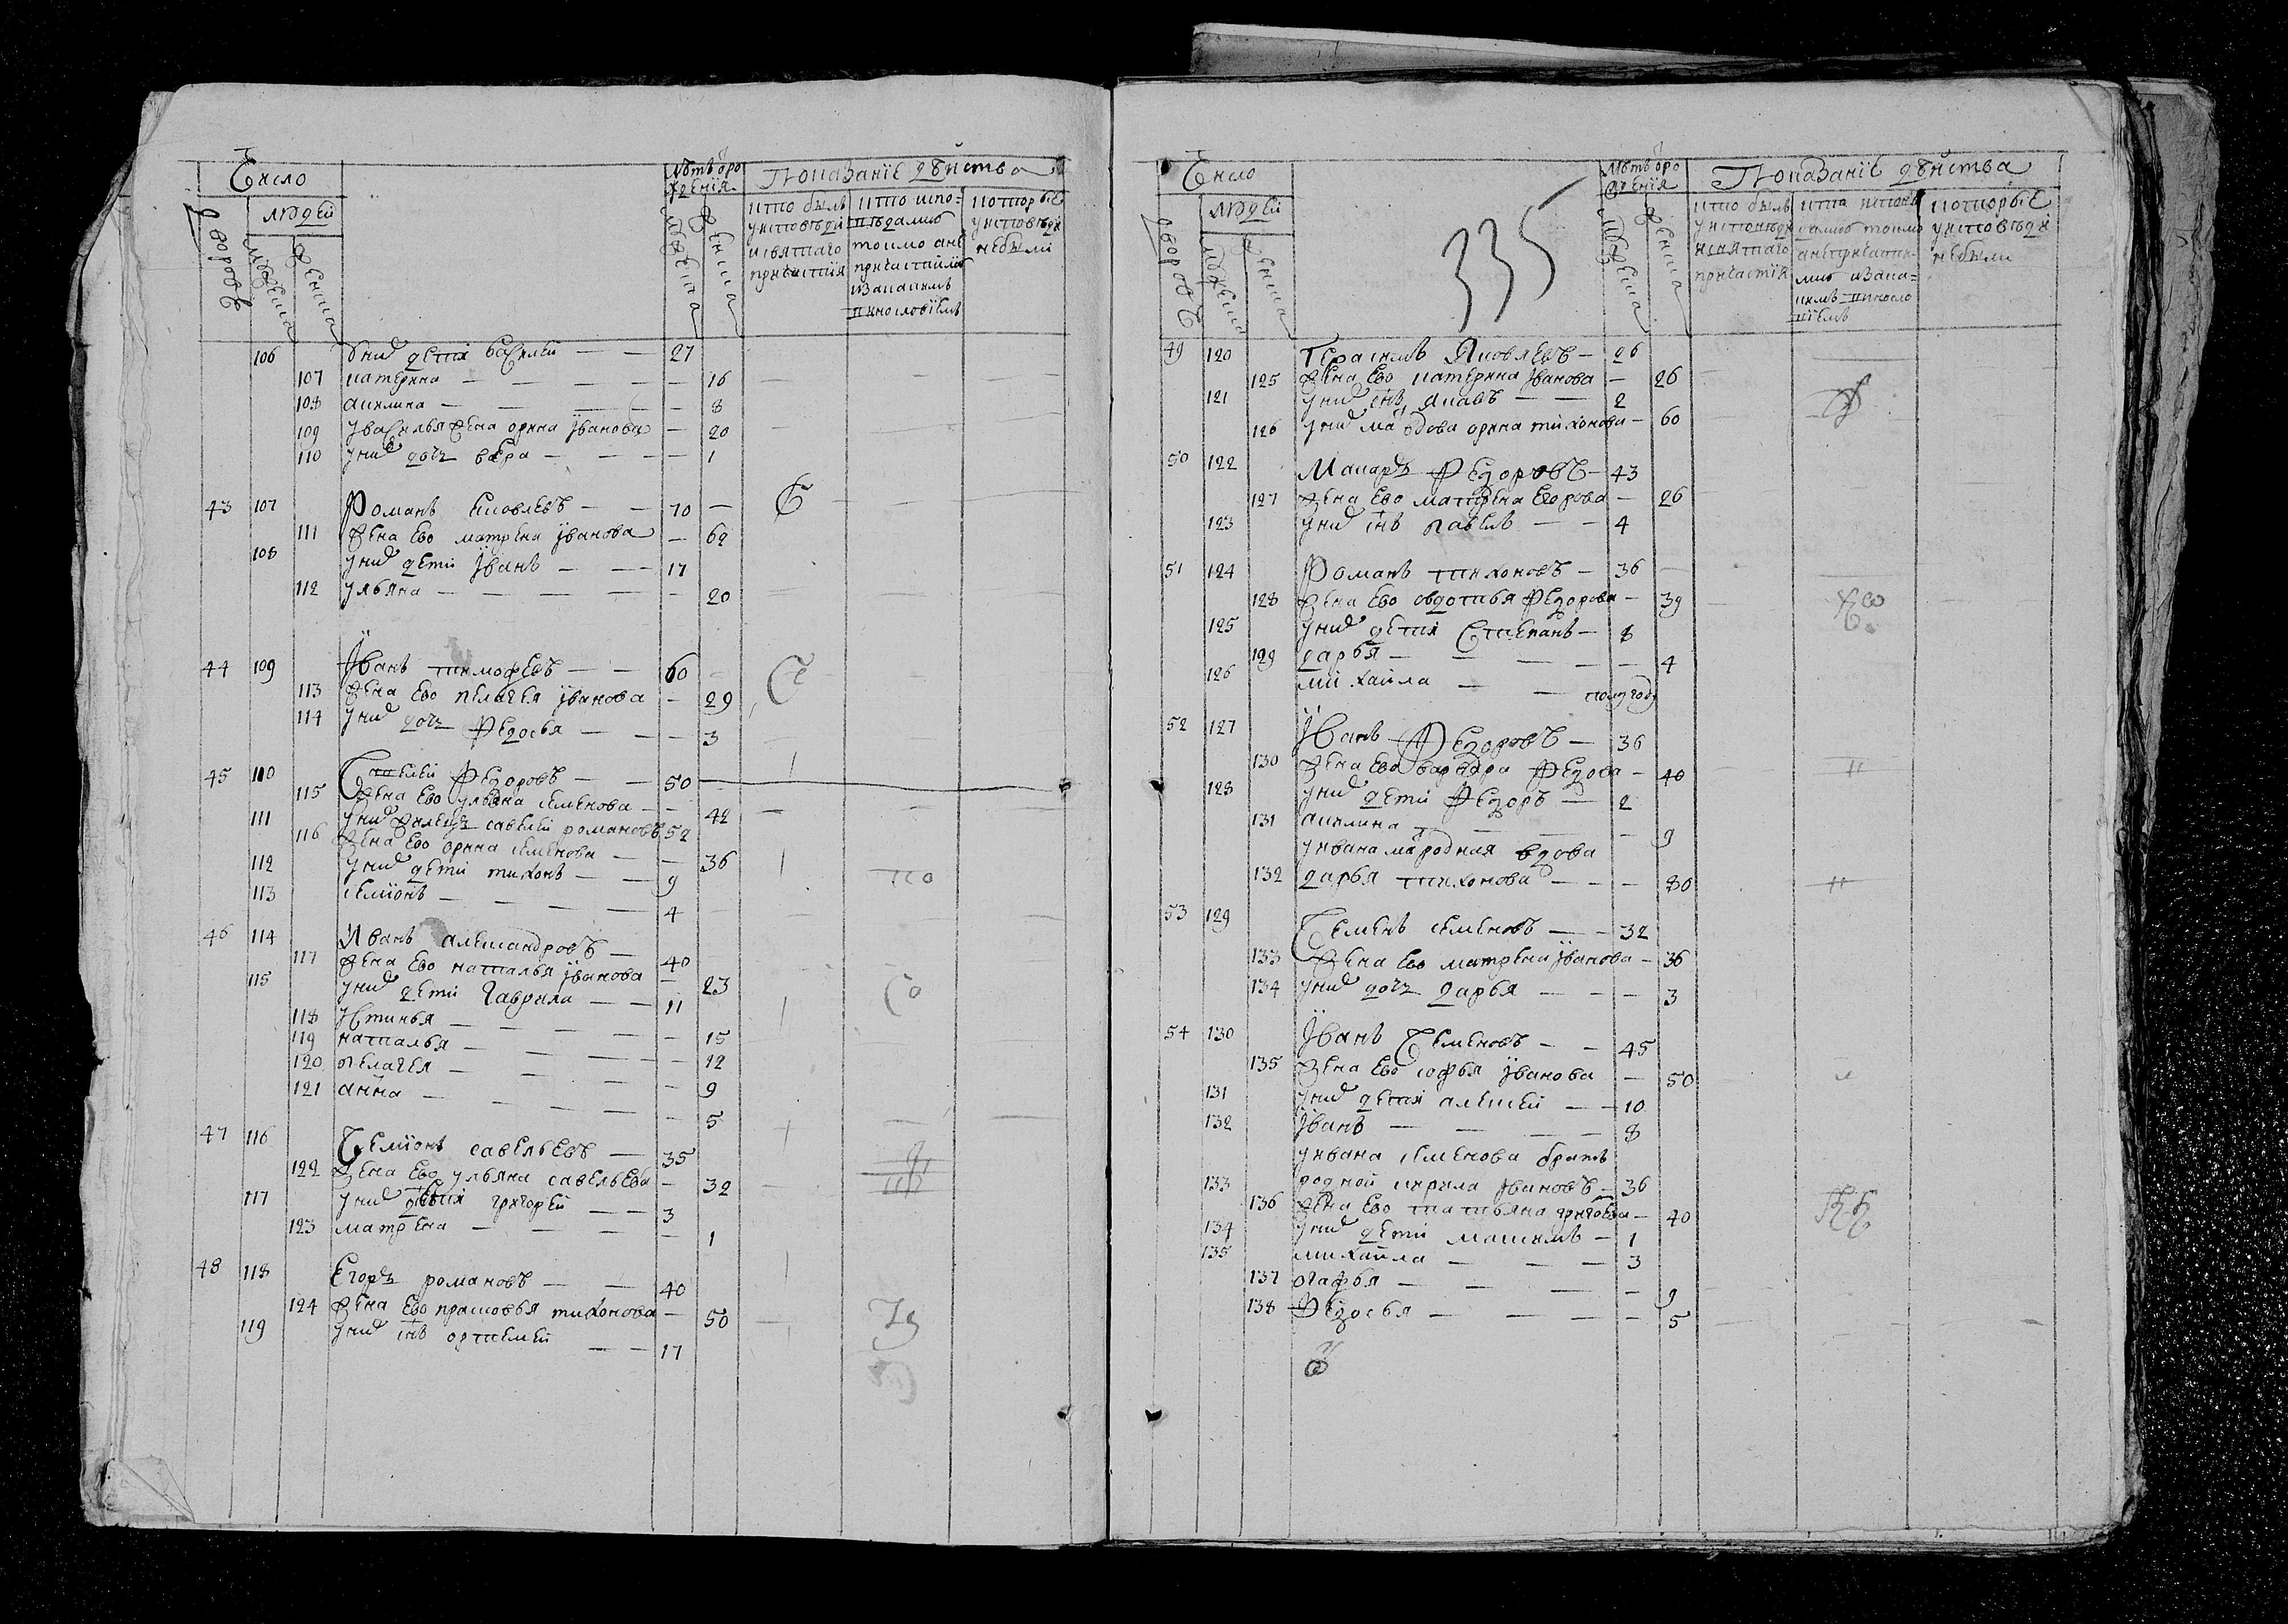 Число
людей
дворовъ
мужеска
женска
лѣтъ от рождения
мужеска
женска
Показанїе дѣйства
кто былъ у исповѣди и святаго причастия
кто исповѣдался токмо а не причастился и за каким винословїемъ
которые у исповѣди не были
106 У них дети василей — — 27
107 катерина — — — — 16
108 акилина — — — — 8
109 У василья жена орина Иванова — 20
110 У них дочь вера — — — 1
43 107 Романъ Яковлевъ — — 70
111 жена ево матрена Иванова — 62
108 У них дети Иванъ — — 17
112 Ульяна — — — — 20
44 109 Иванъ тимофѣевъ — — 60
113 жена ево пелагея Иванова — 29
114 У них дочь Федосья — — 3
45 110 Савелей Федоровъ — — 50
115 жена ево ульяна семенова — 42
111 У них жилецъ савелей романовъ 52
116 жена ево орина семенова — 36
112 У них дети тихонъ — — 9
113 семионъ — — — — 4
46 114 Иванъ александровъ — 40
117 жена ево наталья Иванова — 23
115 У них дети Гаврила — — 11
118 Устинья — — — — 15
119 наталья — — — — 12
120 пелагея — — — — 9
121 анна — — — — 5
47 116 Семионъ савельевъ — 35
122 жена ево ульяна савельева — 32
117 У них дети григорей — — 3
123 матрена — — — — 1
48 118 Егоръ романовъ — — 40
124 жена ево прасковья тихонова — 50
119 У них снъ ортемей — — 17
Число
людей
дворовъ
мужеска
женска
335
лѣтъ от рождения
мужеска
женска
Показанїе дѣйства
кто былъ у исповѣди и святаго причастїя
кто исповѣдался токмо а не причастился и за каким винословїемъ
которые у исповѣди не были
49 120 Герасимъ Яковлевъ — 26
125 жена ево катерина Иванова — 26
121 У них снъ Яковъ — — 2
126 У них мать вдова орина тихонова — 60
50 122 Макаръ Федоровъ — 43
127 жена ево матрена Егорова — 26
123 У них снъ павелъ — — 4
51 124 Романъ тихоновъ — 36
128 жена ево овдотья Федорова — 39
125 У них дети Степанъ — 8
129 дарья — — — — 4
126 михайла — — полугоду
52 127 Иванъ Федоровъ — 36
130 жена ево варвара Федова — 40
128 У них дети Федоръ — 2
131 акилина — — — — 9
у ивана мать родная вдова
132 дарья тихонова — — — 80
53 129 Семенъ семеновъ — — 32
133 жена ево матрена Иванова — 36
134 У них дочь дарья — — — 3
54 130 Иванъ Семеновъ — — 45
135 жена ево софья Иванова — 50
131 У них дети алексей — — 10
132 Иванъ — — — — 8
у ивана семенова братъ
133 родной кирила Ивановъ — 36
136 жена ево татьяна григоева — 40
134 У них дети максимъ — 1
135 михайла — — — 3
137 огафья — — — — 9
138 Федосья — — — — 5